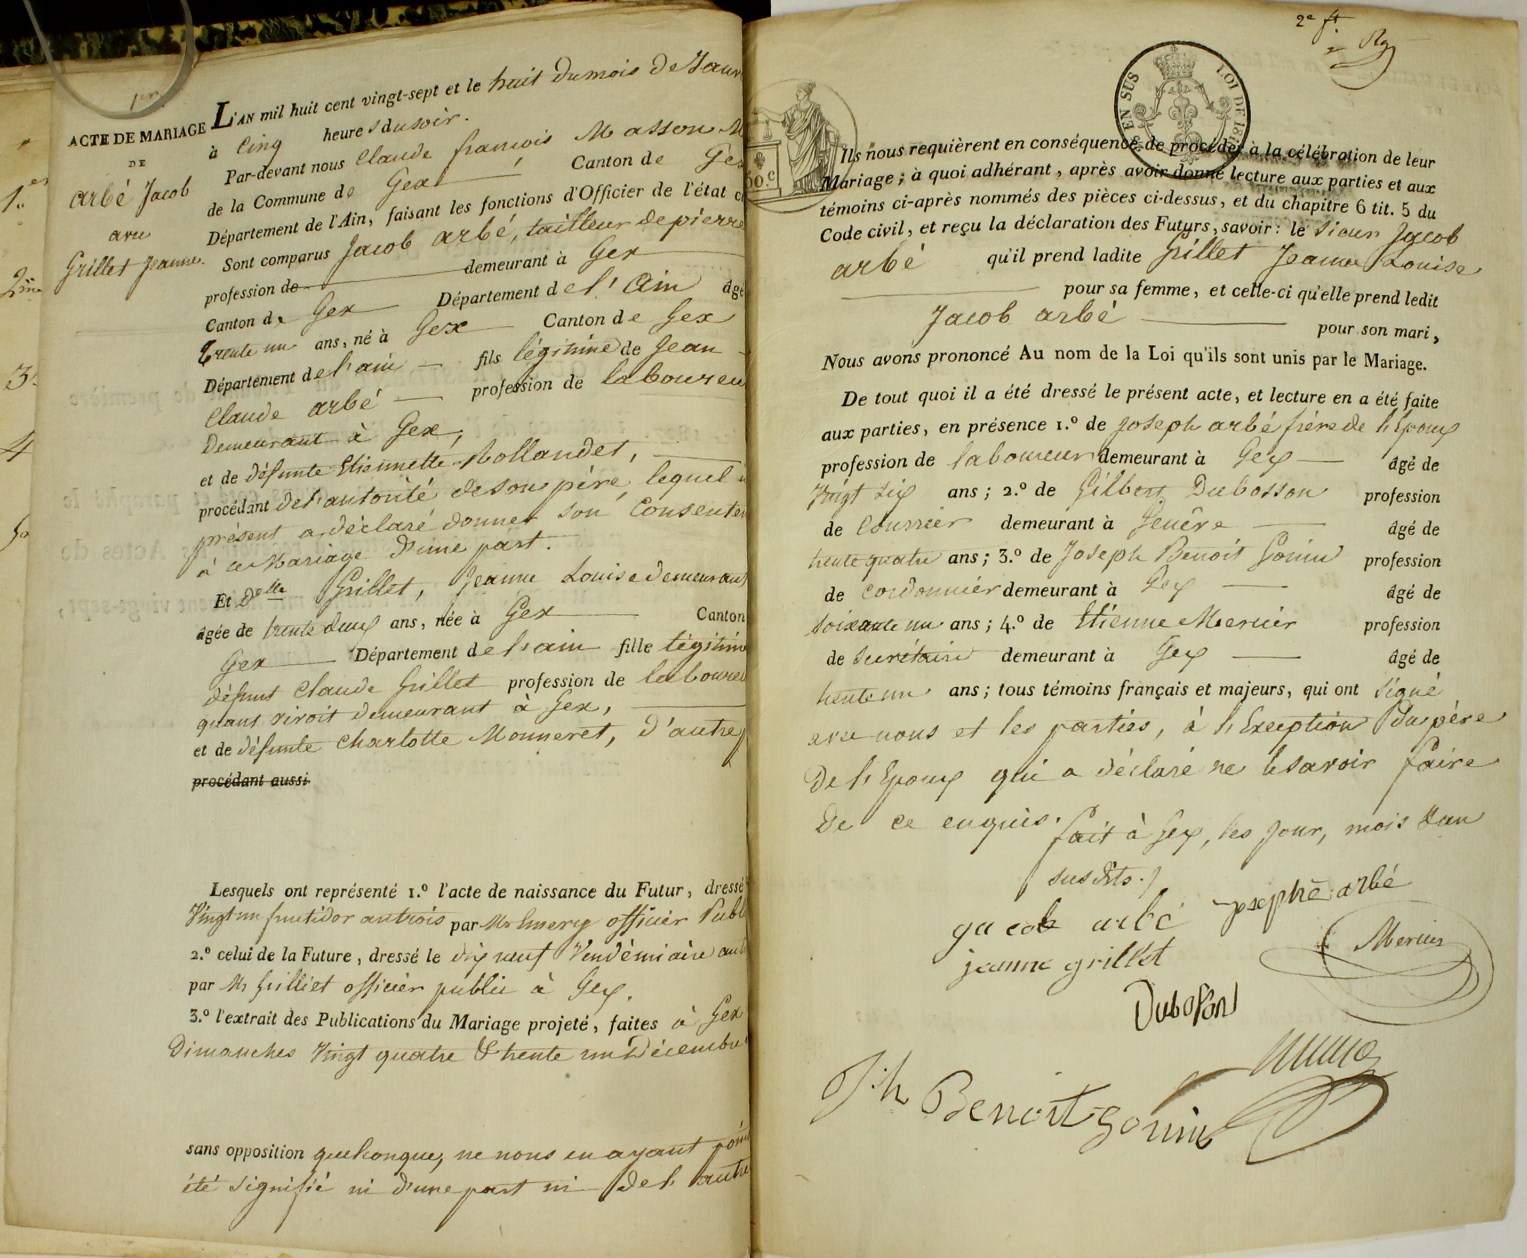 1er
ACTE DE MARIAGE
DE
arbé Jacob
avec
Grillet Jeanne.
1er
2me
3e
4
5e
L'AN mil huit cent vingt-sept et le huit du mois de Janv
à Cinq heures du soir.
Par-devant nous Claude françois Masson M
de la Commune de Gex Canton de Gex
Département de l'Ain, faisant les fonctions d'Officier de l'état c
Sont comparus Jacob arbé, tailleur de pierre
profession de demeurant à Gex
Canton de Gex Département de l'Ain âgé
trente un ans, né à Gex Canton de Gex
Département de l'ain fils légitime de Jean
Claude arbé profession de laboureu
Demeurant à Gex,
et de défunte Etiennette Rollandet,
procédant de l'autorité de son père, lequel
présent a déclaré donner son Consentem
à ce Mariage d'une part.
Et Delle Grillet, Jeanne Louise demeurant
âgée de trente deux ans, née à Gex Canton
Gex Département de l'ain fille légitim
défunt Claude Grillet profession de laboureu
quant vivoit demeurant à Gex,
et de défunte Charlotte Monneret, d'autre p
procédant aussi
Lesquels ont représenté 1.º l'acte de naissance du Futur, dressé
Vingt un fructidor an trois par Mr Emery officier Publ
2.º celui de la Future, dressé le dix neuf Vendémiaire an
par Mr Grilliet officier public à Gex.
3.º l'extrait des Publications du Mariage projeté, faites à Gex
Dimanches Vingt quatre & trente un Décembre
sans opposition quelconque, ne nous en ayant poin
été signifié ni d'une part ni de l'autre
2e ft
EN SUS
LOI DE
50.c
Ils nous requièrent en conséquence de procéder à la célébration de leur
Mariage; à quoi adhérant, après avoir donné lecture aux parties et aux
témoins ci-après nommés des pièces ci-dessus, et du chapitre 6 tit. 5 du
Code civil, et reçu la déclaration des Futurs, savoir: le sieur Jacob
arbé qu'il prend ladite Grillet Jeanne Louise
pour sa femme, et celle-ci qu'elle prend ledit
Jacob arbé pour son mari,
Nous avons prononcé Au nom de la Loi qu'ils sont unis par le Mariage.
De tout quoi il a été dressé le présent acte, et lecture en a été faite
aux parties, en présence 1.º de Joseph arbé frère de l'Epoux
profession de laboureur demeurant à Gex âgé de
Vingt six ans; 2.º de Gilbert Dubosson profession
de Courrier demeurant à Genève âgé de
trente quatre ans; 3.º de Joseph Benoit Gonin profession
de cordonnier demeurant à Gex âgé de
soixante un ans; 4.º de Etienne Mercier profession
de Secrétaire demeurant à Gex âgé de
trente un ans; tous témoins français et majeurs, qui ont signé
avec nous et les parties, à l'Exception du père
De l'Epoux qui a déclaré ne le savoir faire
De ce enquis. fait à Gex, les jour, mois & an
susdits.
yacob arbé josephe arbé
jeanne grillet Mercier
Dubosson
Jph Benoit gonin